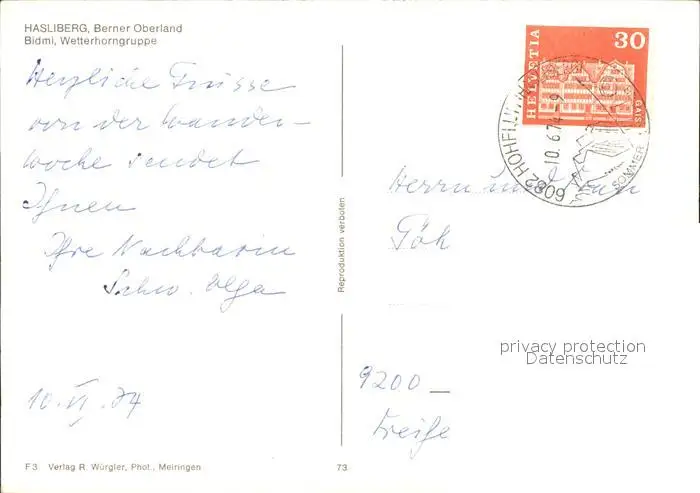 HASLIBERG, Berner Oberland
Bidmi, Wetterhorngruppe
Herzliche Grüsse
von der Wander-
woche sendet
Ihnen
Ihre Nachbarin
Schw. Olga
10. VI. 74
F 3 Verlag R. Würgler, Phot., Meiringen
Reproduktion verboten
73
HELVETIA
30
GAIS
6082 HOHFLUH
10.6.74-9
SOMMER
Herrn und Frau
9200
privacy protection
Datenschutz